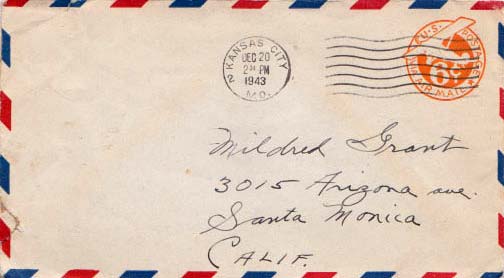 KANSAS CITY 2
DEC 20
2 PM
1943
MO.
U.S. POSTAGE
6¢
VIA AIR MAIL
Mildred Grant
3015 Arizona ave.
Santa Monica
CALIF.